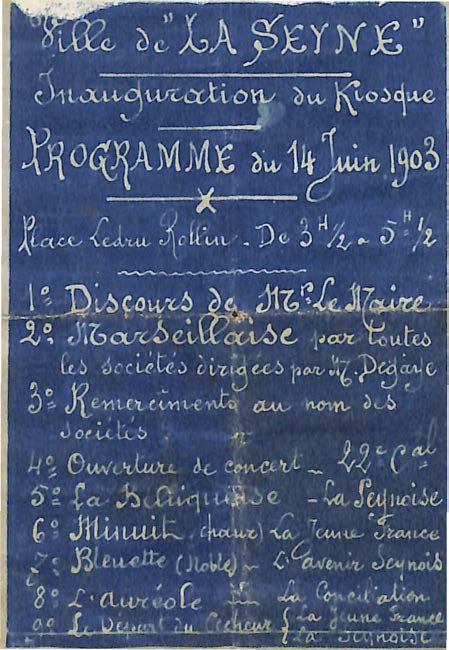 Ville de "LA SEYNE"
Inauguration du Kiosque
PROGRAMME du 14 Juin 1903
Place Ledru Rollin - De 3H1/2 a 5H1/2
1º Discours de Mr. Le Maire
2º Marseillaise par toutes
les sociétés dirigées par M. Degaye
3º Remerciments au nom des
sociétés
4º Ouverture de concert - 22e Cal
5º La - La Seynoise
6º Minuit (chœur) La Jeune France
7º Bleuette (Noble) - L'avenir Seynois
8º L'auréole La Conciliation
9º Le Départ du { La Jeune France
{ La Seynoise